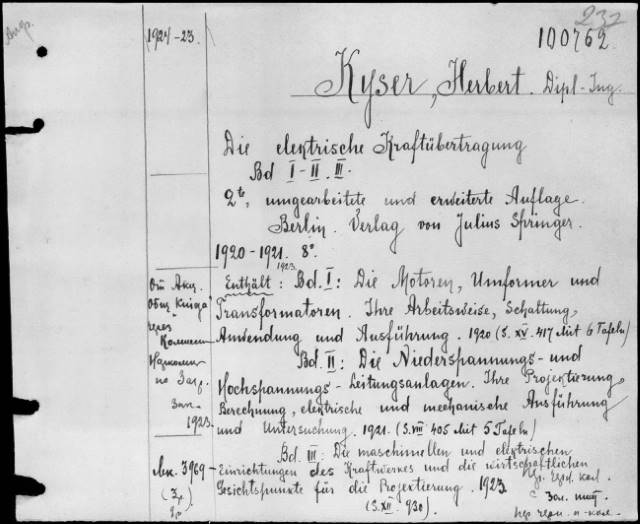 232
100762
1921-23.
Kyser, Herbert. Dipl-Ing.
Die elektrische Kraftübertragung
Bd I-II. III.
2te, umgearbeitete und erweiterte Auflage.
Berlin. Verlag von Julius Springer.
1920-1921. 8°
1923
Enthält: Bd. I: Die Motoren, Umformer und
Transformatoren. Ihre Arbeitsweise, Schaltung,
Anwendung und Ausführung. 1920 (S. XV. 417 Mit 6 Tafeln)
Bd. II: Die Niederspannungs- und
Hochspannungs-Leitungsanlagen. Ihre Projektierung,
Berechnung, elektrische und mechanische Ausführung
und Untersuchung. 1921. (S. VIII 405 Mit 5 Tafeln)
Bd. III: Die maschinellen und elektrischen
Einrichtungen des Kraftwerkes und die wirtschaftlichen
Gesichtspunkte für die Projektierung. 1923
(S. XII. 930).
От Акц.
Общ. Книга
через
по Заг.
Зап.
1923
Лек. 3969